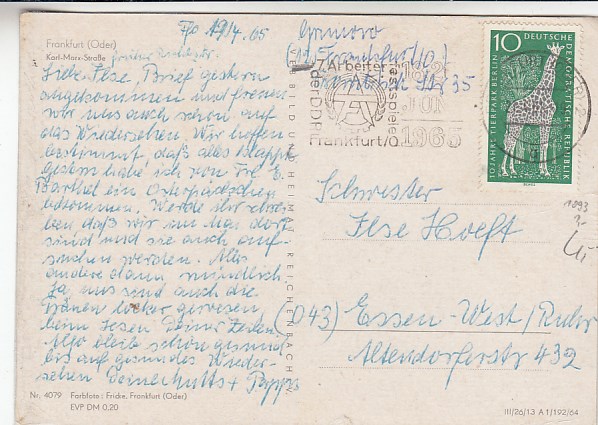 Frankfurt (Oder)
Karl-Marx-Straße
Ffo 19/4. 65
Liebe Ilse, Brief gestern
angekommen und freuen
wir uns auch schon auf
das Wiedersehen. Wir hoffen
bestimmt, daß alles klappt.
gestern habe ich von Frl. E.
Barthel ein Osterpäckchen
bekommen. Werde ihr schrei-
ben daß wir im Mai dort
sind und sie auch auf-
suchen werden. Alles
andere dann mündlich
Ja, uns sind auch die
Tränen locker gewesen
beim Lesen Deiner Zeilen.
Also bleibe schön gesund
bis auf gesundes Wieder-
sehen Deine Mutti + Pappa
Nr. 4079 Farbfoto: Fricke, Frankfurt (Oder)
EVP DM 0.20
BILD UND HEIMAT REICHENBACH
7. Arbeiter
festspiele
der DDR
Frankfurt/O
18.-20.
JUNI
1965
10
DEUTSCHE DEMOKRATISCHE REPUBLIK
10 JAHRE TIERPARK BERLIN
Schwester
Ilse Hoeft
(043) Essen-West/Ruhr
Altendorferstr 432
1093
III/26/13 A 1/192/64